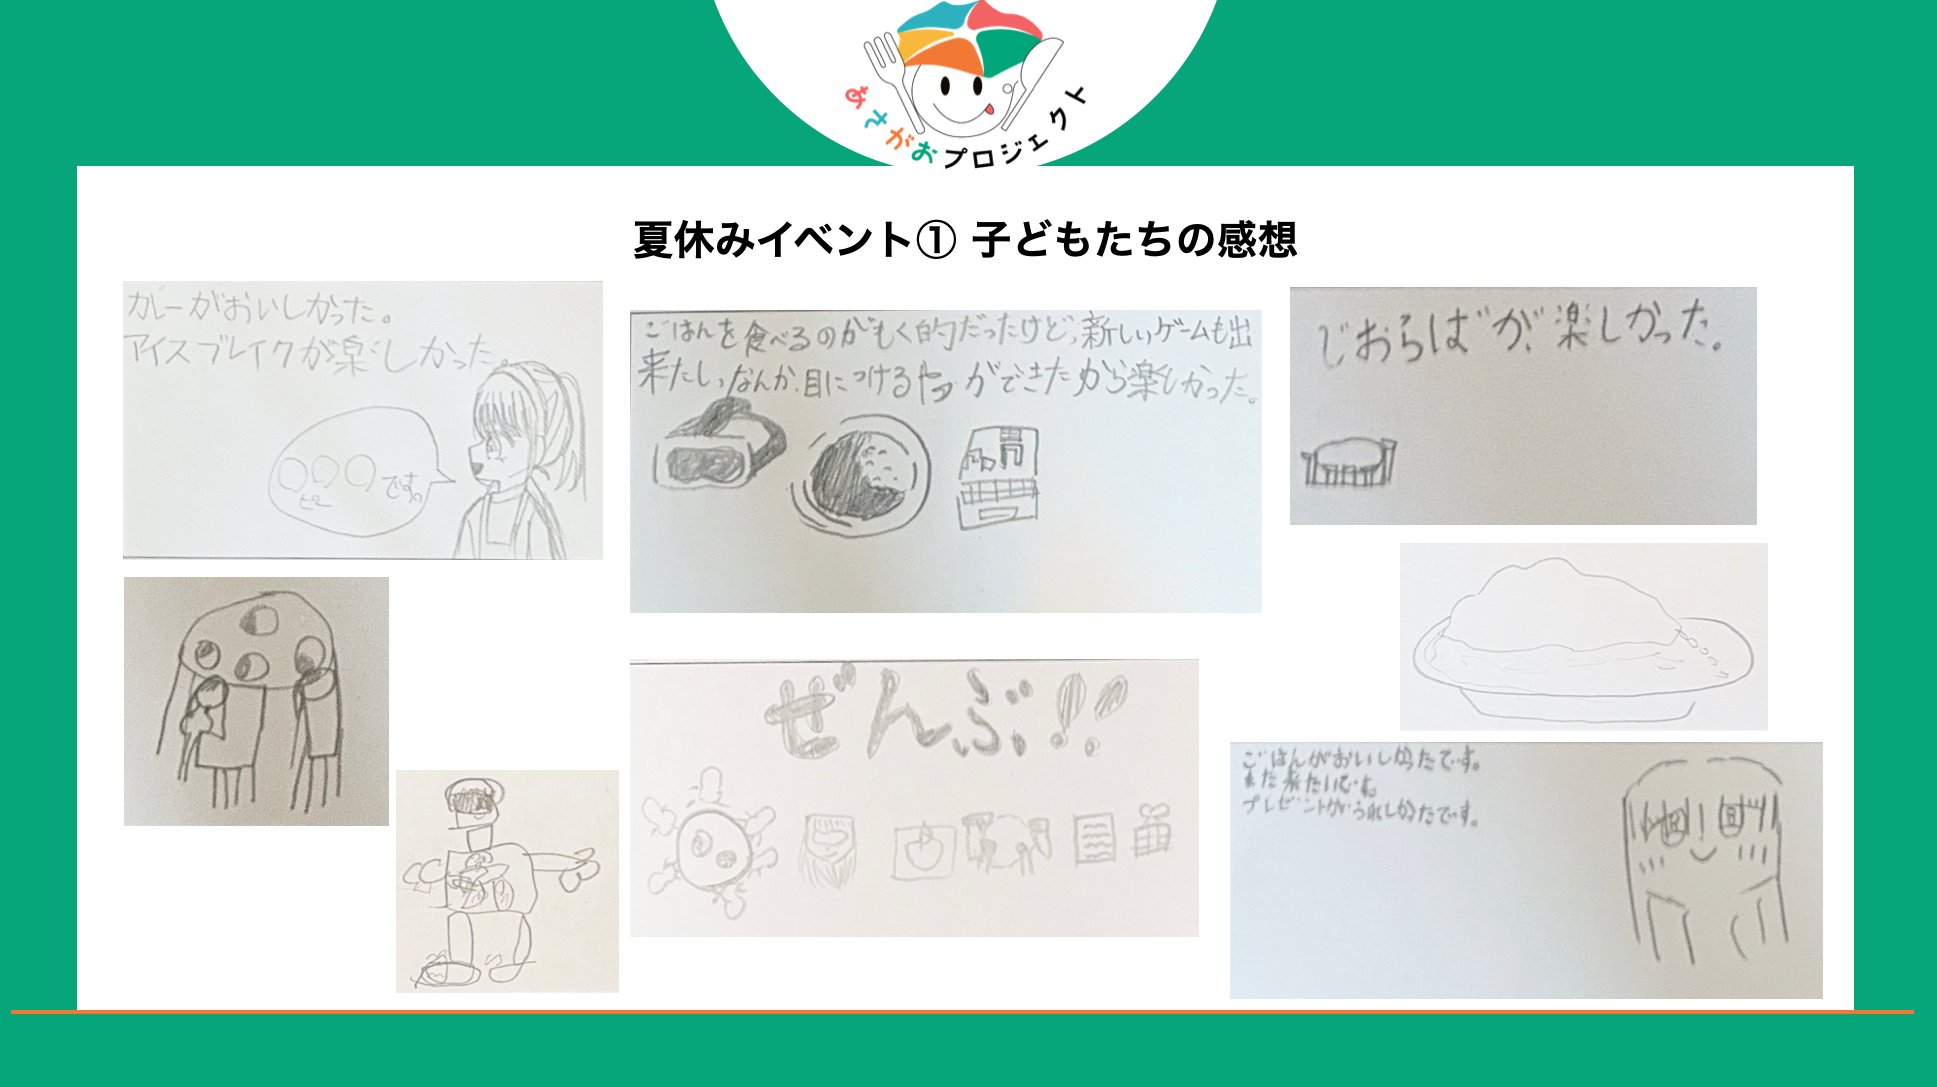 あさがおプロジェクト
夏休みイベント① 子どもたちの感想
カレーがおいしかった。
アイスブレイクが楽しかった。
〇〇〇です。
ピー
ごはんを食べるのがもく的だったけど、新しいゲームも出
来たし、なんか、目につけるやつができたから楽しかった。
じおらばが、楽しかった。
ぜんぶ!!
ごはんがおいしかったです。
また来たいです。
プレゼントがうれしかったです。